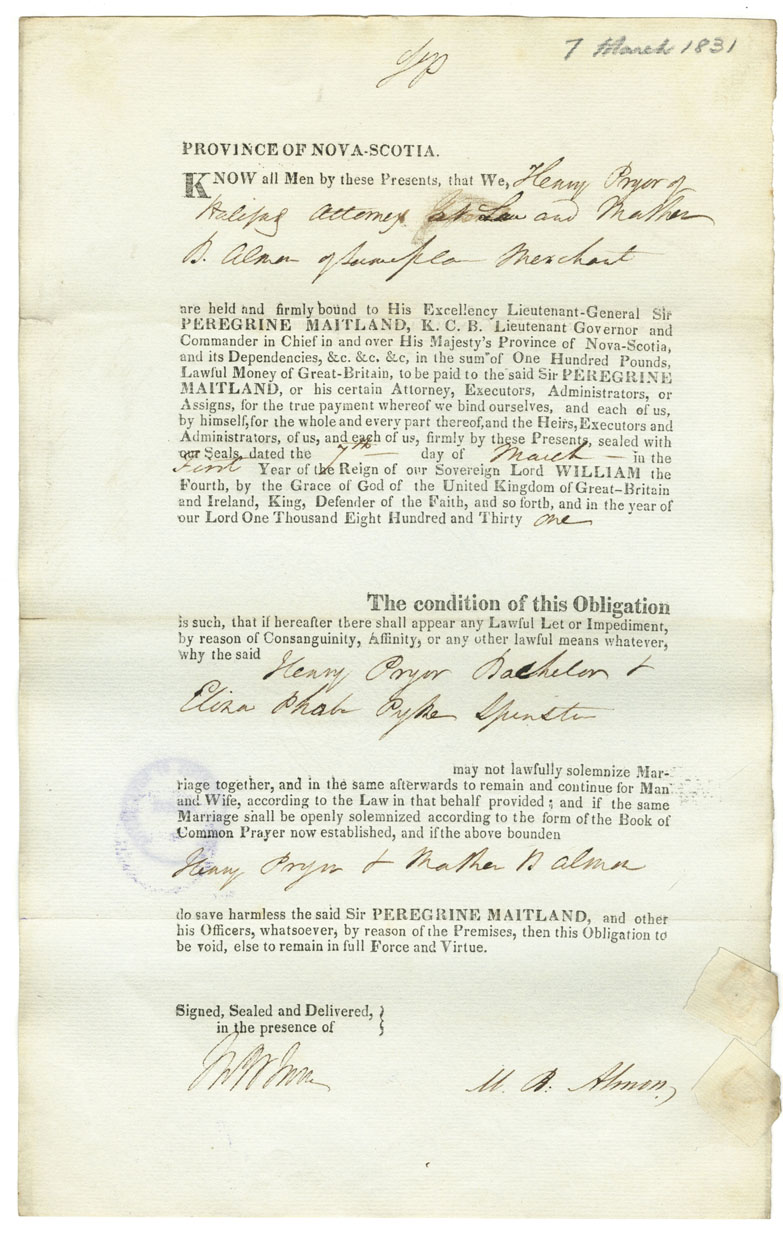 7 March 1831
PROVINCE OF NOVA-SCOTIA.
KNOW all Men by these Presents, that We, Henry Pryor of
Halifax Attorney at Law and Mather
B. Almon of same place Merchant
are held and firmly bound to His Excellency Lieutenant-General Sir
PEREGRINE MAITLAND, K. C. B. Lieutenant Governor and
Commander in Chief in and over His Majesty's Province of Nova-Scotia,
and its Dependencies, &c. &c. &c, in the sum of One Hundred Pounds,
Lawful Money of Great-Britain, to be paid to the said Sir PEREGRINE
MAITLAND, or his certain Attorney, Executors, Administrators, or
Assigns, for the true payment whereof we bind ourselves, and each of us,
by himself, for the whole and every part thereof, and the Heirs, Executors and
Administrators, of us, and each of us, firmly by these Presents, sealed with
our Seals, dated the 7th day of March in the
First Year of the Reign of our Sovereign Lord WILLIAM the
Fourth, by the Grace of God of the United Kingdom of Great-Britain
and Ireland, King, Defender of the Faith, and so forth, and in the year of
our Lord One Thousand Eight Hundred and Thirty one
The condition of this Obligation
is such, that if hereafter there shall appear any Lawful Let or Impediment,
by reason of Consanguinity, Affinity, or any other lawful means whatever,
why the said Henry Pryor Bachelor &
Eliza Phœbe Pyke Spinster
may not lawfully solemnize Mar-
riage together, and in the same afterwards to remain and continue for Man
and Wife, according to the Law in that behalf provided; and if the same
Marriage shall be openly solemnized according to the form of the Book of
Common Prayer now established, and if the above bounden
Henry Pryor & Mather B Almon
do save harmless the said Sir PEREGRINE MAITLAND, and other
his Officers, whatsoever, by reason of the Premises, then this Obligation to
be void, else to remain in full Force and Virtue.
Signed, Sealed and Delivered, }
in the presence of
M. B. Almon